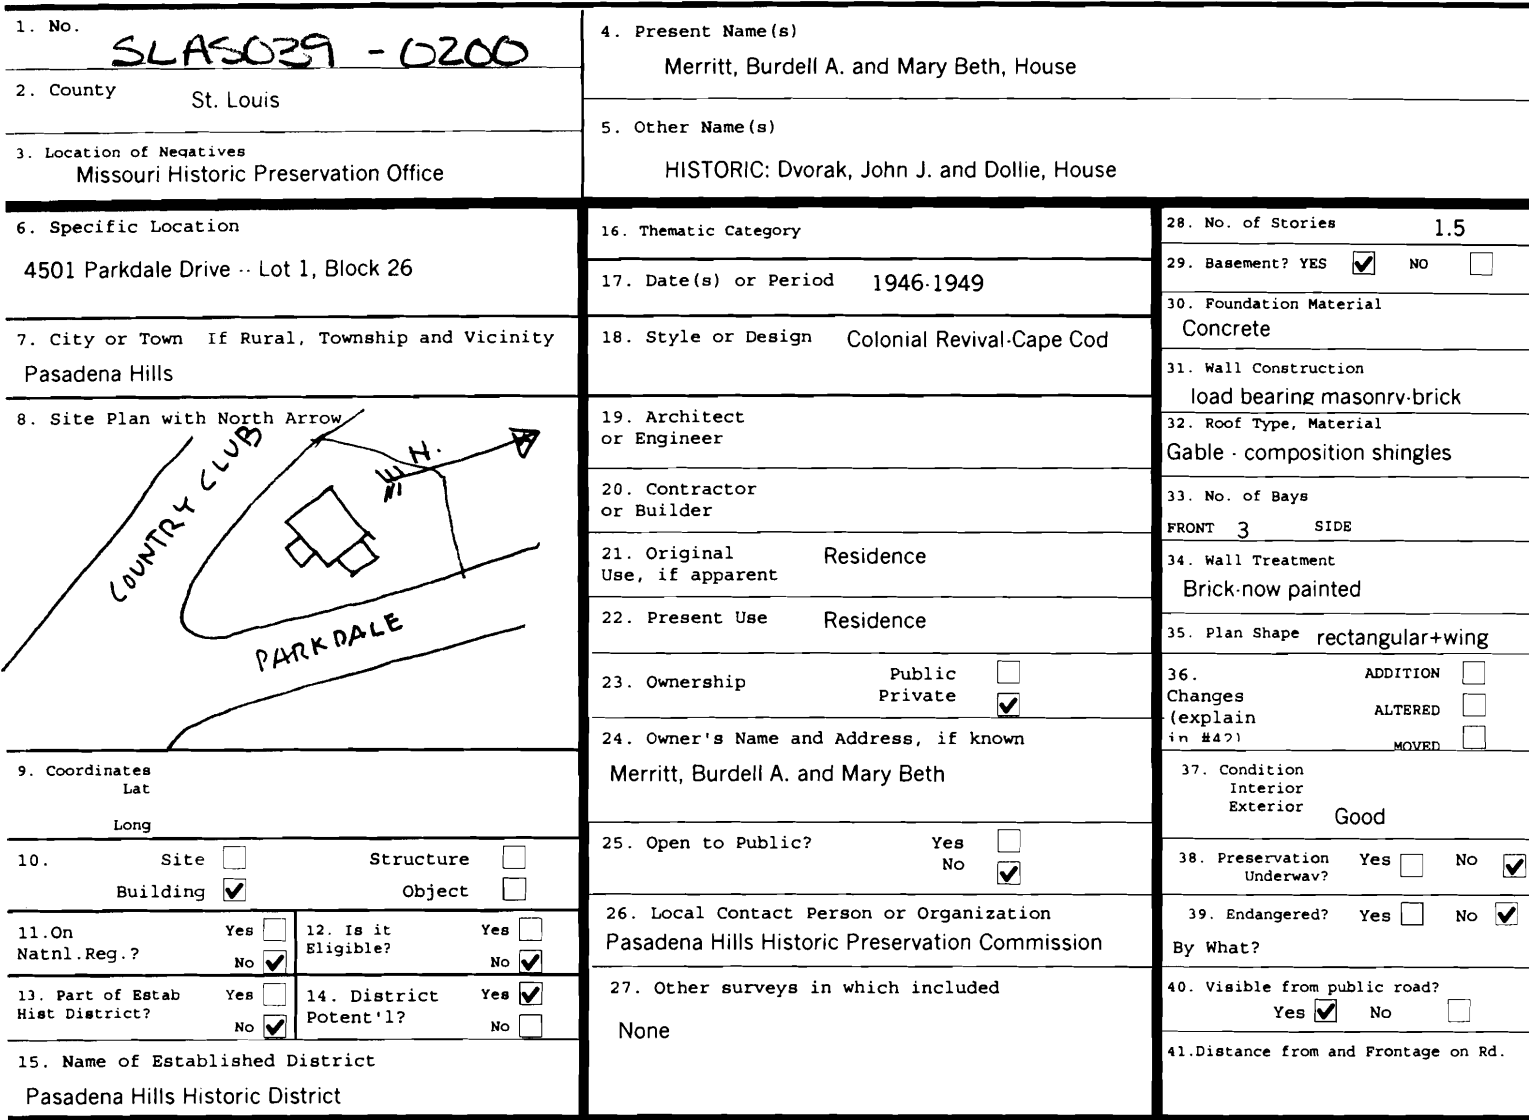 1. No.
SLAS039 - 0200
2. County St. Louis
3. Location of Negatives
Missouri Historic Preservation Office
4. Present Name(s)
Merritt, Burdell A. and Mary Beth, House
5. Other Name(s)
HISTORIC: Dvorak, John J. and Dollie, House
6. Specific Location
4501 Parkdale Drive -- Lot 1, Block 26
7. City or Town If Rural, Township and Vicinity
Pasadena Hills
8. Site Plan with North Arrow
COUNTRY CLUB
N.
PARKDALE
9. Coordinates
Lat
Long
10. Site Structure
Building Object
11.On Yes
Natnl.Reg.? No
12. Is it Yes
Eligible? No
13. Part of Estab Yes
Hist District? No
14. District Yes
Potent'l? No
15. Name of Established District
Pasadena Hills Historic District
16. Thematic Category
17. Date(s) or Period 1946-1949
18. Style or Design Colonial Revival-Cape Cod
19. Architect
or Engineer
20. Contractor
or Builder
21. Original Residence
Use, if apparent
22. Present Use Residence
23. Ownership Public
Private
24. Owner's Name and Address, if known
Merritt, Burdell A. and Mary Beth
25. Open to Public? Yes
No
26. Local Contact Person or Organization
Pasadena Hills Historic Preservation Commission
27. Other surveys in which included
None
28. No. of Stories 1.5
29. Basement? YES NO
30. Foundation Material
Concrete
31. Wall Construction
load bearing masonry-brick
32. Roof Type, Material
Gable - composition shingles
33. No. of Bays
FRONT 3 SIDE
34. Wall Treatment
Brick-now painted
35. Plan Shape rectangular+wing
36. ADDITION
Changes
(explain ALTERED
in #42) MOVED
37. Condition
Interior
Exterior Good
38. Preservation Yes No
Underway?
39. Endangered? Yes No
By What?
40. Visible from public road?
Yes No
41.Distance from and Frontage on Rd.